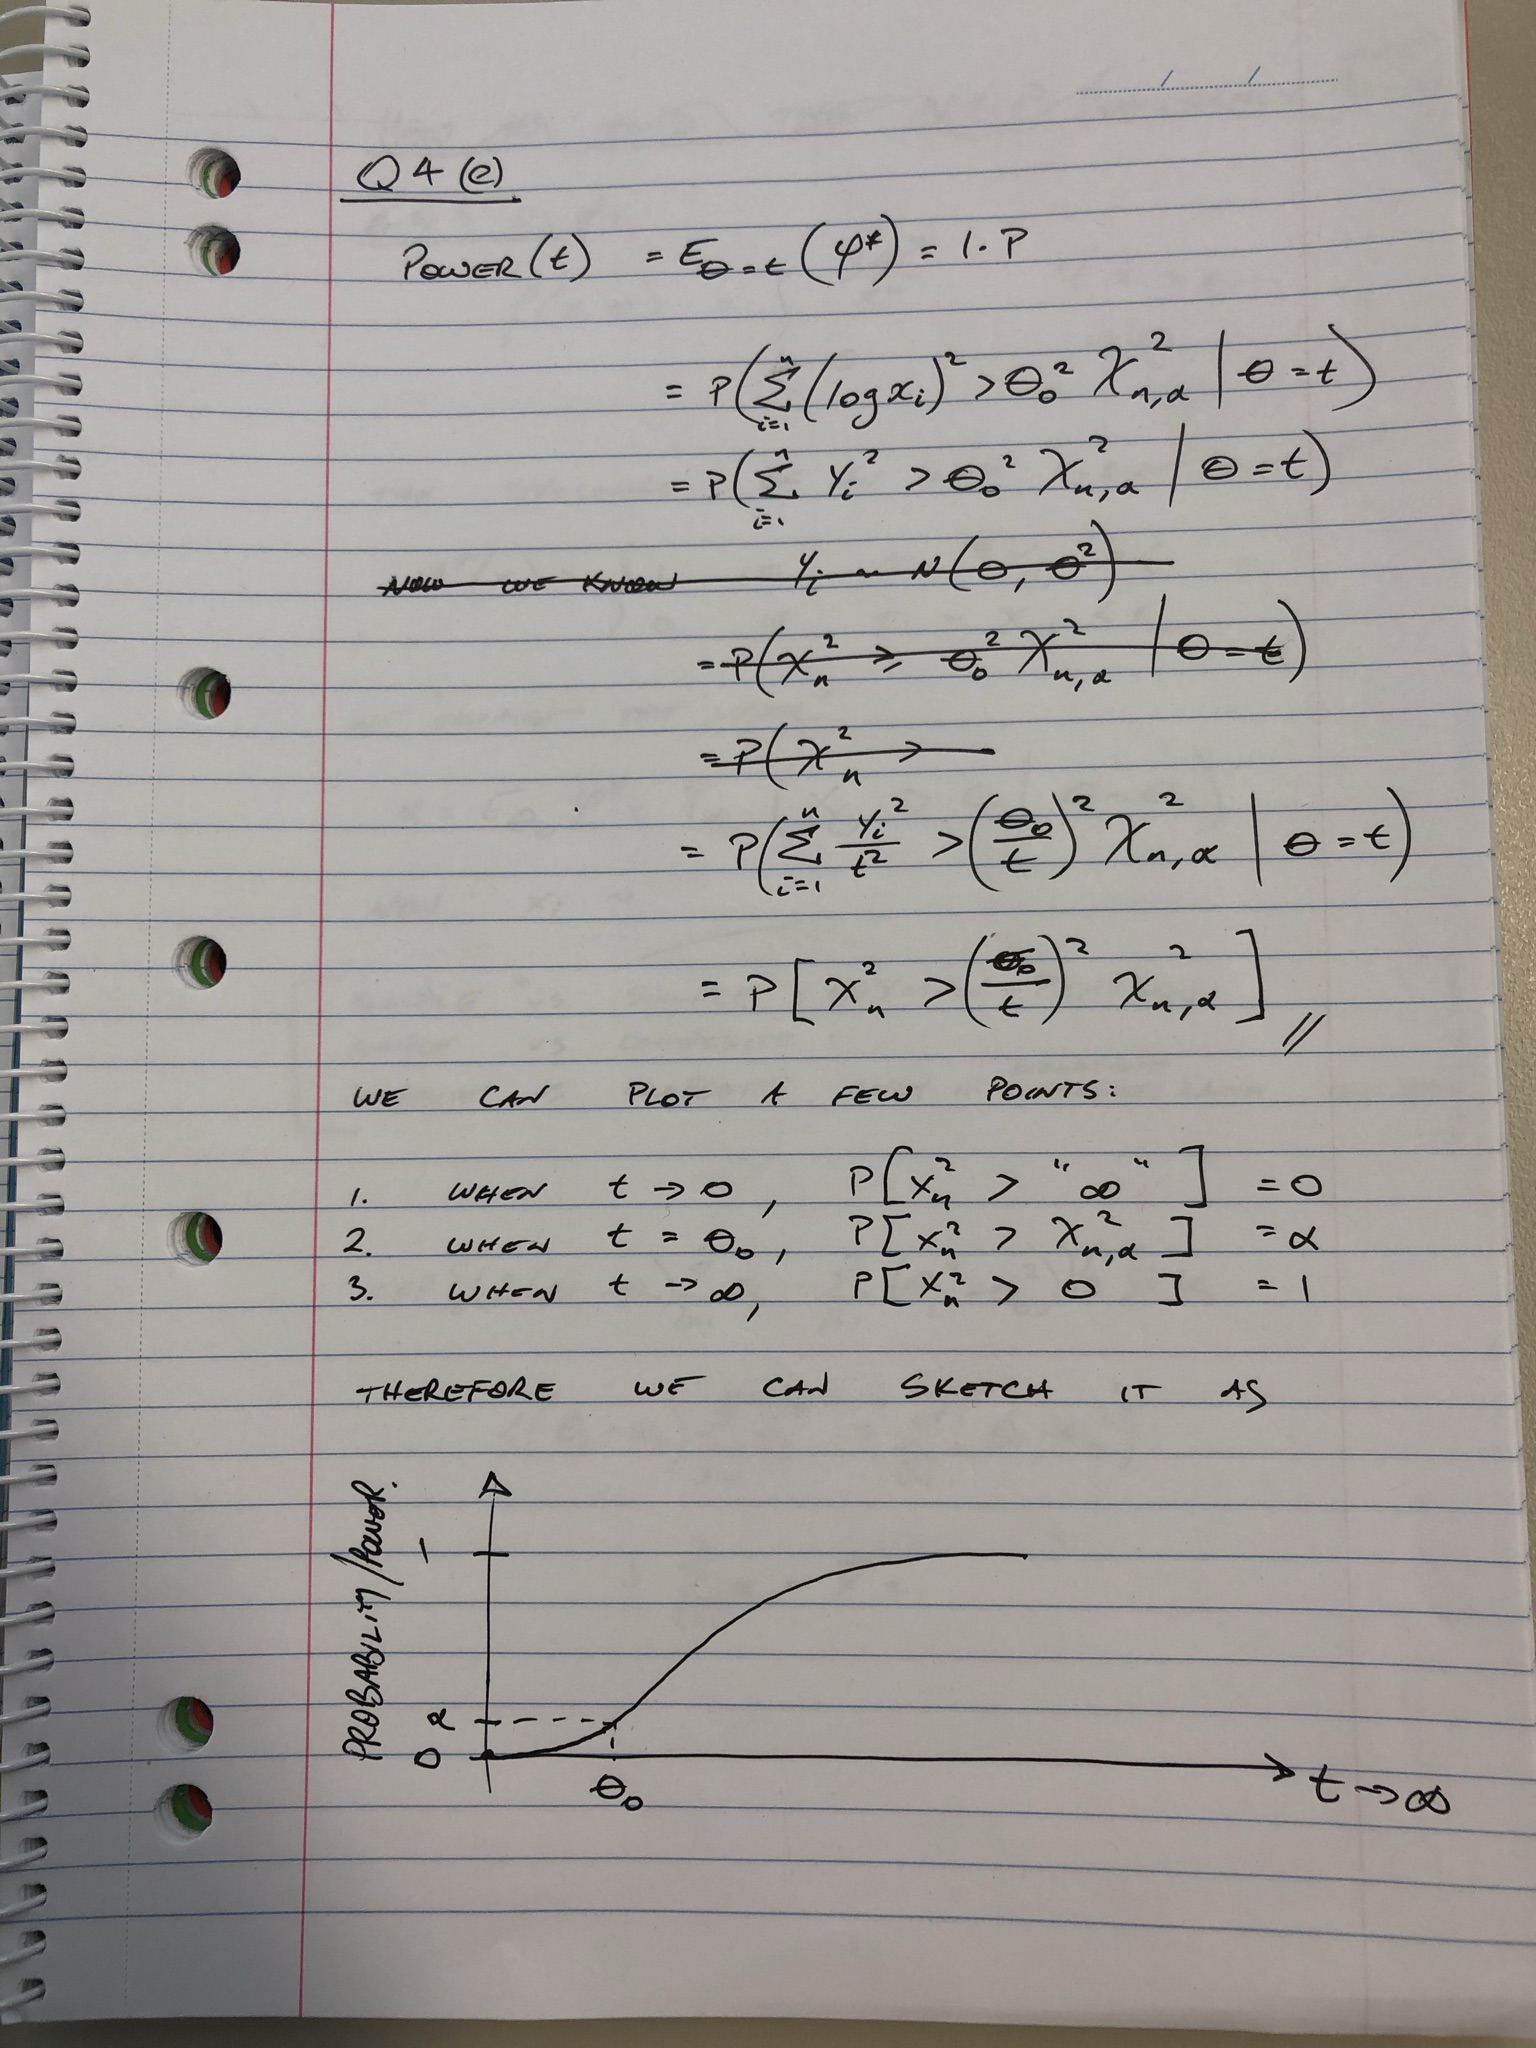 Q4 (e)
POWER(t) = E_{θ=t}(φ*) = 1·P
= P(∑_{i=1}^{n} (log x_i)² > θ_0² χ²_{n,α} | θ=t)
= P(∑_{i=1}^{n} Y_i² > θ_0² χ²_{n,α} | θ=t)
NOW WE KNOW Y_i ~ N(θ, θ²)
= P(χ²_n ≥ θ_0² χ²_{n,α} | θ=t)
= P(χ²_n >
= P(∑_{i=1}^{n} Y_i²/t² > (θ_0/t)² χ²_{n,α} | θ=t)
= P[χ²_n > (θ_0/t)² χ²_{n,α}] //
WE CAN PLOT A FEW POINTS:
1. WHEN t → 0, P[χ²_n > "∞"] = 0
2. WHEN t = θ_0, P[χ²_n > χ²_{n,α}] = α
3. WHEN t → ∞, P[χ²_n > 0] = 1
THEREFORE WE CAN SKETCH IT AS
PROBABILITY/POWER.
1
α
0
θ_0
t → ∞